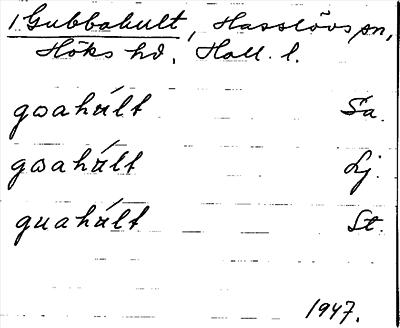 1 Gubbahult, Hasslövs sn,
Höks hd. Hall. l.
gɷahált Sa.
gɷahált Lj.
guahált St.
1947.